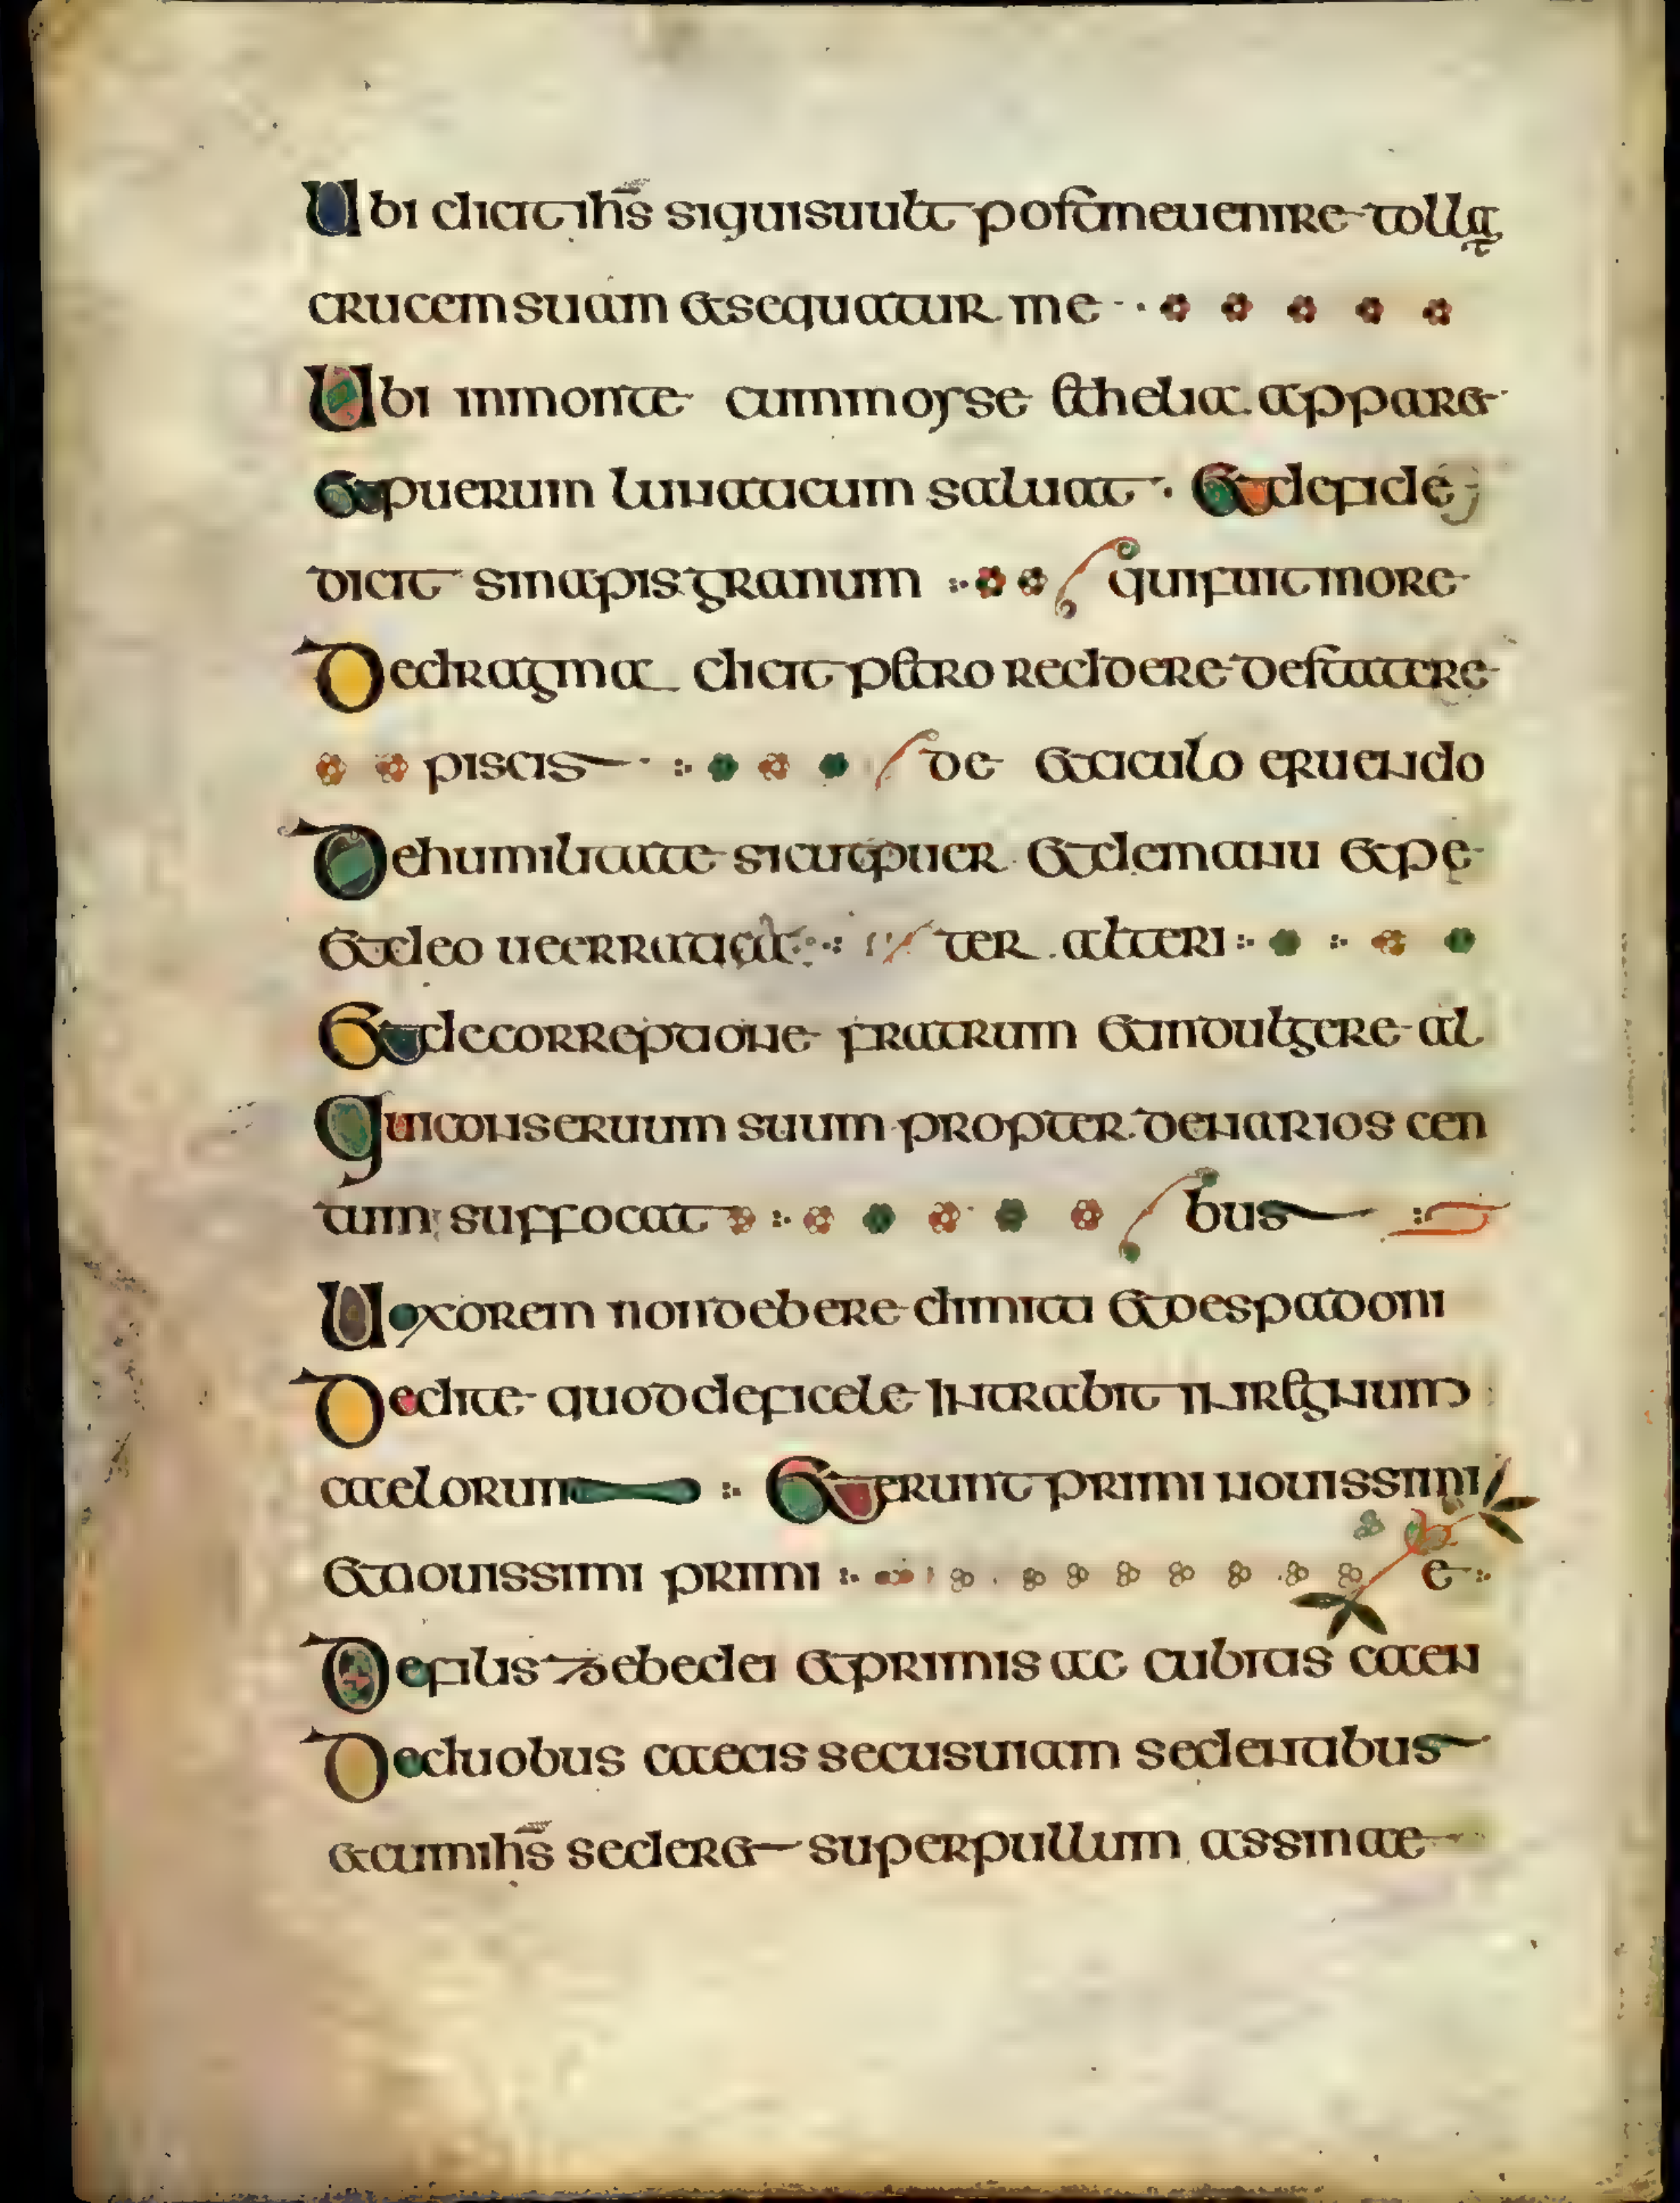 Ubi dicit ihs siquisuult postmeuenire tollat
crucem suam etsequatur me
Ubi inmonte cummoyse ethelia apparet
etpuerum lunaticum saluat · Etdefide
dicit sinapis granum quifuitmore
Dedragma dicit petro reddere destatere
piscis de etoculo eruendo
Dehumilitate sicutpuer Etdemanu etpe
Etdeo ter alteri
Etdecorreptione fratrum etindulgere al
quiconseruum suum propter denarios cen
tum suffocat bus
Uoxorem nondebere dimitti etdespadoni
Dedite quoddeficele intrabit inregnum
caelorum Eterunt primi nouissimi
etnouissimi primi e
Defilis zebedei etprimis ac cubitis caen
Deduobus caecis secusuiam sedentabus
etcumihs sederet superpullum assinae